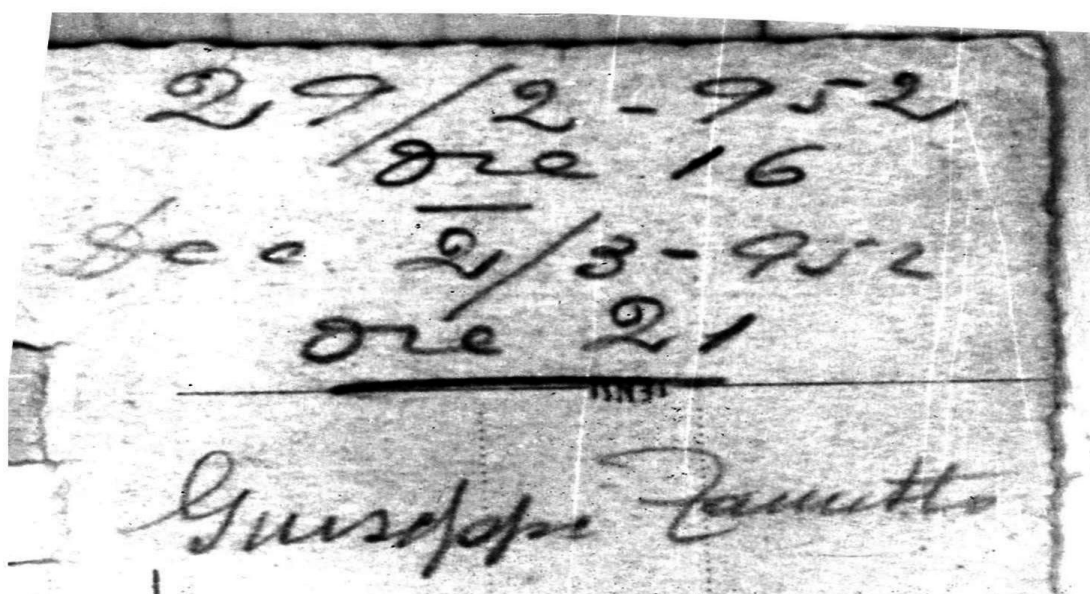 29/2 - 952
ore 16
Dec. 2/3 - 952
ore 21
Giuseppe